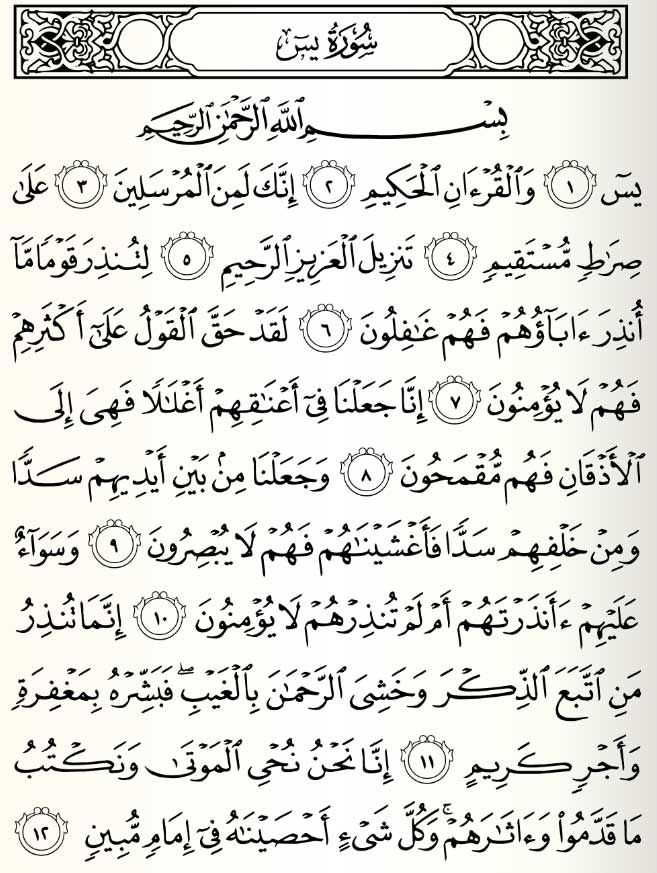 سُورَةُ يسٓ
بِسْمِ ٱللَّهِ ٱلرَّحْمَٰنِ ٱلرَّحِيمِ
يسٓ ١ وَٱلْقُرْءَانِ ٱلْحَكِيمِ ٢ إِنَّكَ لَمِنَ ٱلْمُرْسَلِينَ ٣ عَلَىٰ
صِرَٰطٍ مُّسْتَقِيمٍ ٤ تَنزِيلَ ٱلْعَزِيزِ ٱلرَّحِيمِ ٥ لِتُنذِرَ قَوْمًا مَّآ
أُنذِرَ ءَابَآؤُهُمْ فَهُمْ غَٰفِلُونَ ٦ لَقَدْ حَقَّ ٱلْقَوْلُ عَلَىٰٓ أَكْثَرِهِمْ
فَهُمْ لَا يُؤْمِنُونَ ٧ إِنَّا جَعَلْنَا فِىٓ أَعْنَٰقِهِمْ أَغْلَٰلًا فَهِىَ إِلَى
ٱلْأَذْقَانِ فَهُم مُّقْمَحُونَ ٨ وَجَعَلْنَا مِنۢ بَيْنِ أَيْدِيهِمْ سَدًّا
وَمِنْ خَلْفِهِمْ سَدًّا فَأَغْشَيْنَٰهُمْ فَهُمْ لَا يُبْصِرُونَ ٩ وَسَوَآءٌ
عَلَيْهِمْ ءَأَنذَرْتَهُمْ أَمْ لَمْ تُنذِرْهُمْ لَا يُؤْمِنُونَ ١٠ إِنَّمَا تُنذِرُ
مَنِ ٱتَّبَعَ ٱلذِّكْرَ وَخَشِىَ ٱلرَّحْمَٰنَ بِٱلْغَيْبِ ۖ فَبَشِّرْهُ بِمَغْفِرَةٍ
وَأَجْرٍ كَرِيمٍ ١١ إِنَّا نَحْنُ نُحْىِ ٱلْمَوْتَىٰ وَنَكْتُبُ
مَا قَدَّمُوا۟ وَءَاثَٰرَهُمْ ۚ وَكُلَّ شَىْءٍ أَحْصَيْنَٰهُ فِىٓ إِمَامٍ مُّبِينٍ ١٢